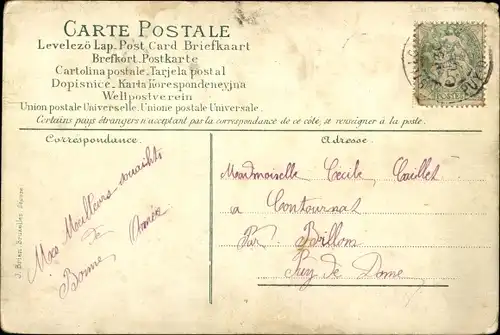 CARTE POSTALE
Levelező Lap. Post Card Briefkaart
Brefkort. Postkarte
Cartolina postale. Tarjela postal
Dopisnice. Karta Korespondencyjna
Weltpostverein
Union postale Universelle. Unione postale Universale.
Certains pays étrangers n'acceptant pas la correspondance de ce côté, se renseigner à la poste.
Correspondance.
Adresse.
Mes Meilleurs souaihts
de
Bonne Année
Mesdmoiselle Cécile Cuillet
a Contournat
Par Billom
Puy de Dome